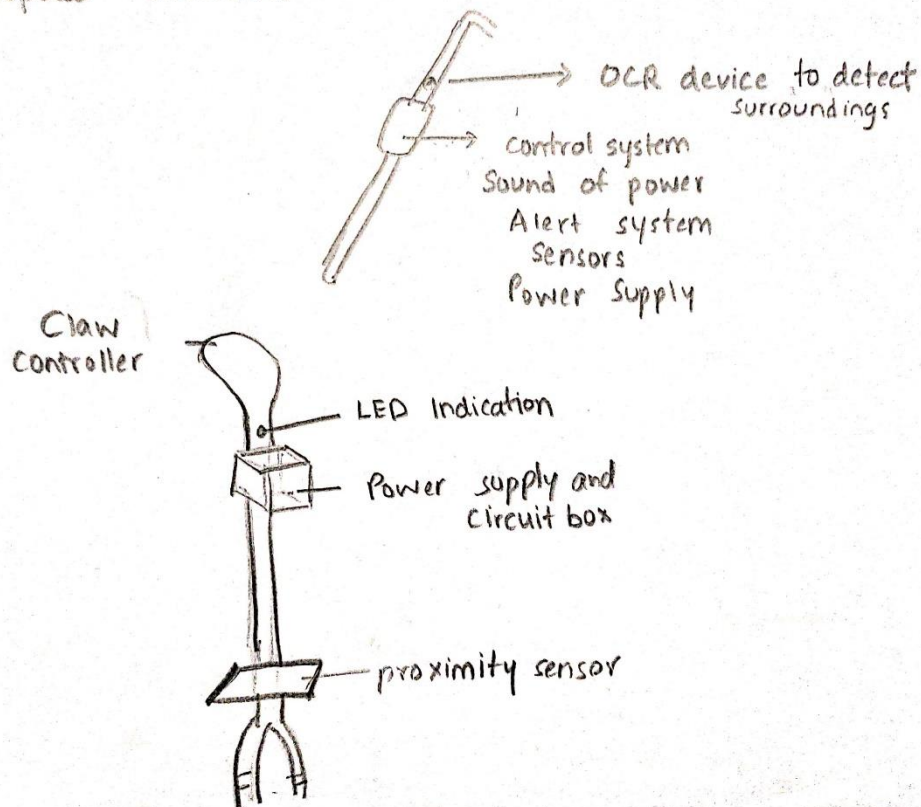 OCR device to detect
surroundings
control system
Sound of power
Alert system
Sensors
Power Supply
Claw
controller
LED Indication
Power supply and
circuit box
proximity sensor